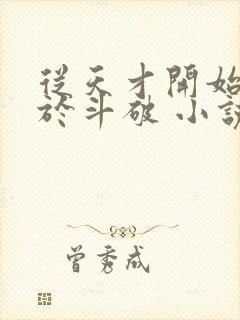 從天才開始
於斗破 小說
曾秀成